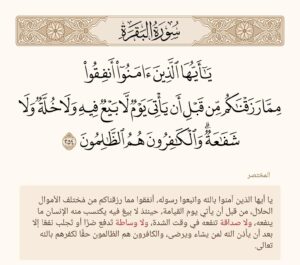 سُورَةُ البَقَرَةِ
يَـٰٓأَيُّهَا ٱلَّذِينَ ءَامَنُوٓاْ أَنفِقُواْ
مِمَّا رَزَقۡنَـٰكُم مِّن قَبۡلِ أَن يَأۡتِيَ يَوۡمٞ لَّا بَيۡعٞ فِيهِ وَلَا خُلَّةٞ وَلَا
شَفَٰعَةٞۗ وَٱلۡكَٰفِرُونَ هُمُ ٱلظَّـٰلِمُونَ ٢٥٤
المختصر
يا أيها الذين آمنوا بالله واتبعوا رسوله، أنفقوا مما رزقناكم من مُختلف الأموال
الحلال، من قبل أن يأتي يوم القيامة، حينئذ لا بيعَ فيه يكتسب منه الإنسان ما
ينفعه، ولا صداقة تنفعه في وقت الشدة، ولا وساطة تَدفع ضرًا أو تجلب نفعًا إلا
بعد أن يأذن الله لمن يشاء ويرضى، والكافرون هم الظالمون حقًّا لكفرهم بالله
تعالى.